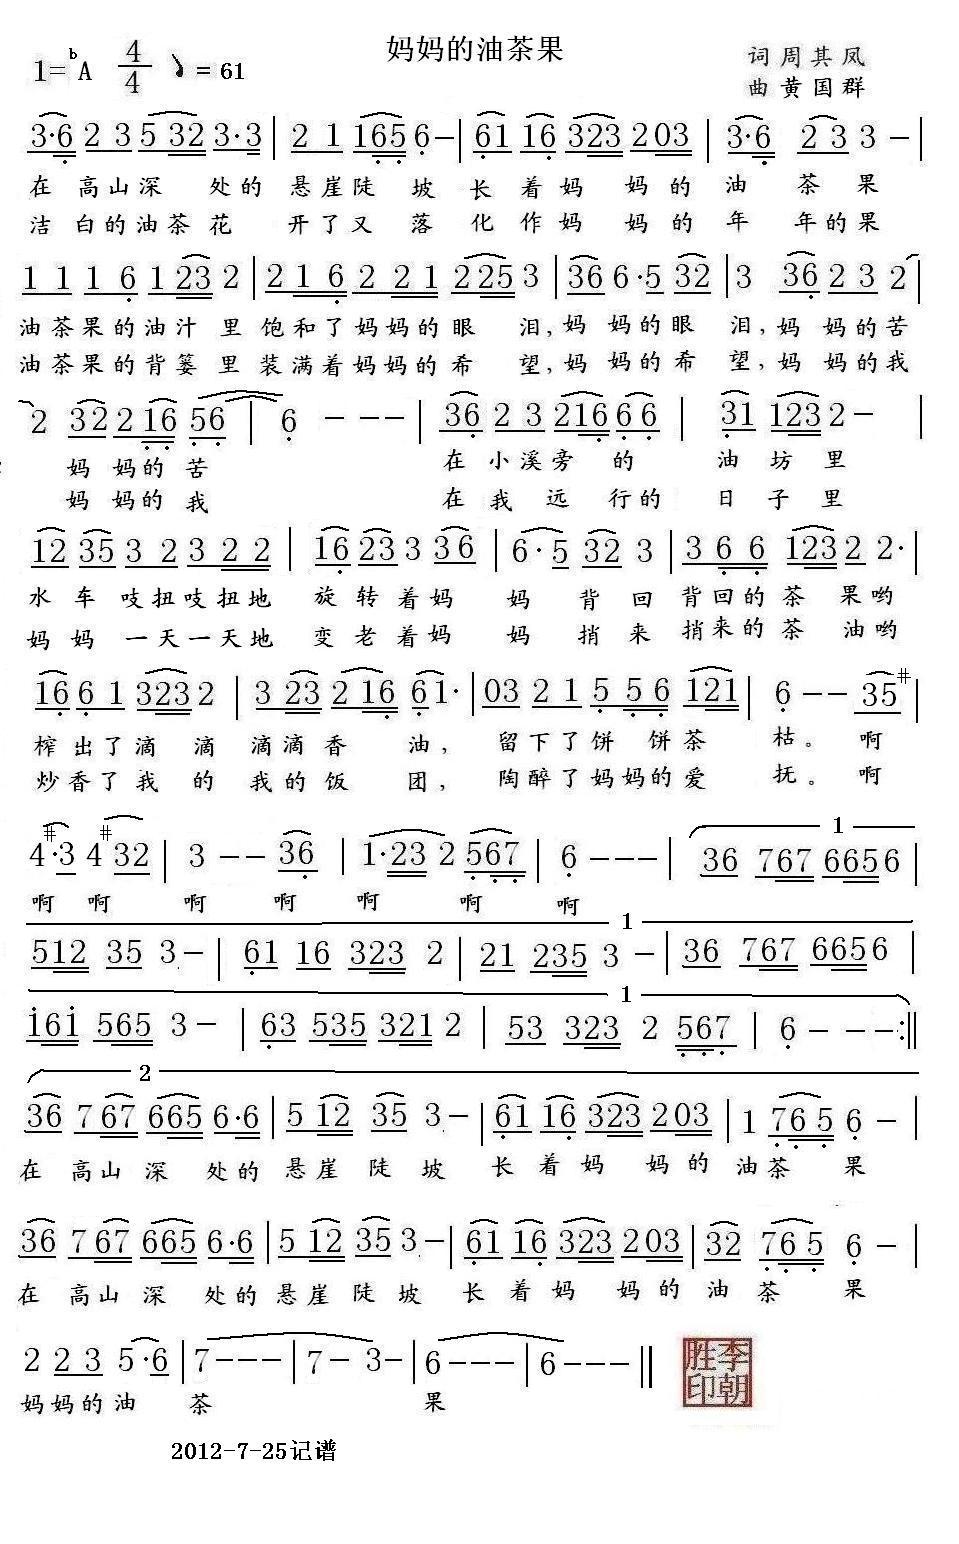 妈妈的油茶果
1=ᵇA 4/4 ♪=61
词周其凤
曲黄国群
3·6 2 3 5 32 3·3 | 2 1 165 6- | 61 16 323 203 | 3·6 2 3 3 - |
在高山深处的悬崖陡坡长着妈妈的油茶果
洁白的油茶花开了又落化作妈妈的年年的果
1 1 1 6 1 23 2 | 2 1 6 2 2 1 2 25 3 | 36 6·5 32 | 3 36 2 3 2 |
油茶果的油汁里饱和了妈妈的眼泪,妈妈的眼泪,妈妈的苦
油茶果的背篓里装满着妈妈的希望,妈妈的希望,妈妈的我
2 32 2 16 56 | 6 - - - | 36 2 3 216 6 6 | 31 123 2 - |
妈妈的苦 在小溪旁的油坊里
妈妈的我 在我远行的日子里
12 35 3 2 3 2 2 | 16 23 3 36 | 6·5 32 3 | 3 6 6 123 2 2· |
水车吱扭吱扭地旋转着妈妈背回背回的茶果哟
妈妈一天一天地变老着妈妈捎来捎来的茶油哟
16 6 1 323 2 | 3 23 2 16 6 1· | 03 2 1 5 5 6 121 | 6 - - 35 |
榨出了滴滴滴滴香油,留下了饼饼茶枯。啊
炒香了我的我的饭团,陶醉了妈妈的爱抚。啊
#4·3 #4 #32 | 3 - - 36 | 1·23 2 567 | 6 - - - | 1 36 767 6656 |
啊啊啊啊啊啊啊
1
512 35 3 - | 61 16 323 2 | 21 235 3 - | 36 767 6656 |
1
i6i 565 3 - | 63 535 321 2 | 53 323 2 567 | 6 - - - :||
2
36 7 67 665 6·6 | 5 12 35 3 - | 61 16 323 203 | 1 765 6 - |
在高山深处的悬崖陡坡长着妈妈的油茶果
36 7 67 665 6·6 | 5 12 35 3 - | 61 16 323 203 | 32 76 5 6 - |
在高山深处的悬崖陡坡长着妈妈的油茶果
2 2 3 5·6 | 7 - - - | 7 - 3 - | 6 - - - | 6 - - - ||
妈妈的油茶果
李朝胜印
2012-7-25记谱